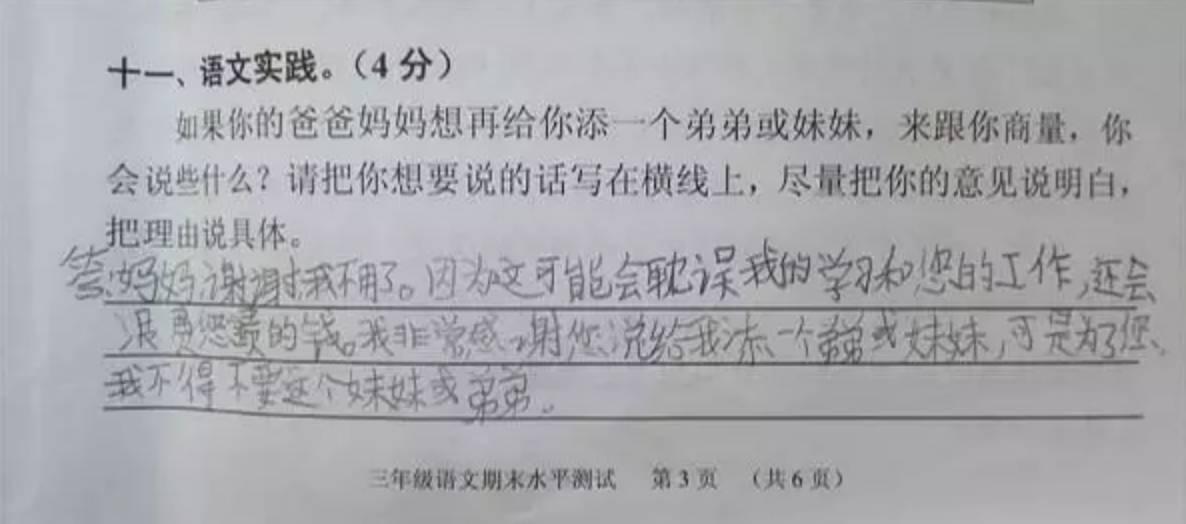 十一、语文实践。（4分）
如果你的爸爸妈妈想再给你添一个弟弟或妹妹，来跟你商量，你
会说些什么？请把你想要说的话写在横线上，尽量把你的意见说明白，
把理由说具体。
答：妈妈谢谢我不用了。因为这可能会耽误我的学习和您的工作，还会
浪费您的钱。我非常感谢您说给我添一个弟弟或妹妹，可是为了您，
我不得不要这个妹妹或弟弟。
三年级语文期末水平测试 第3页 （共6页）